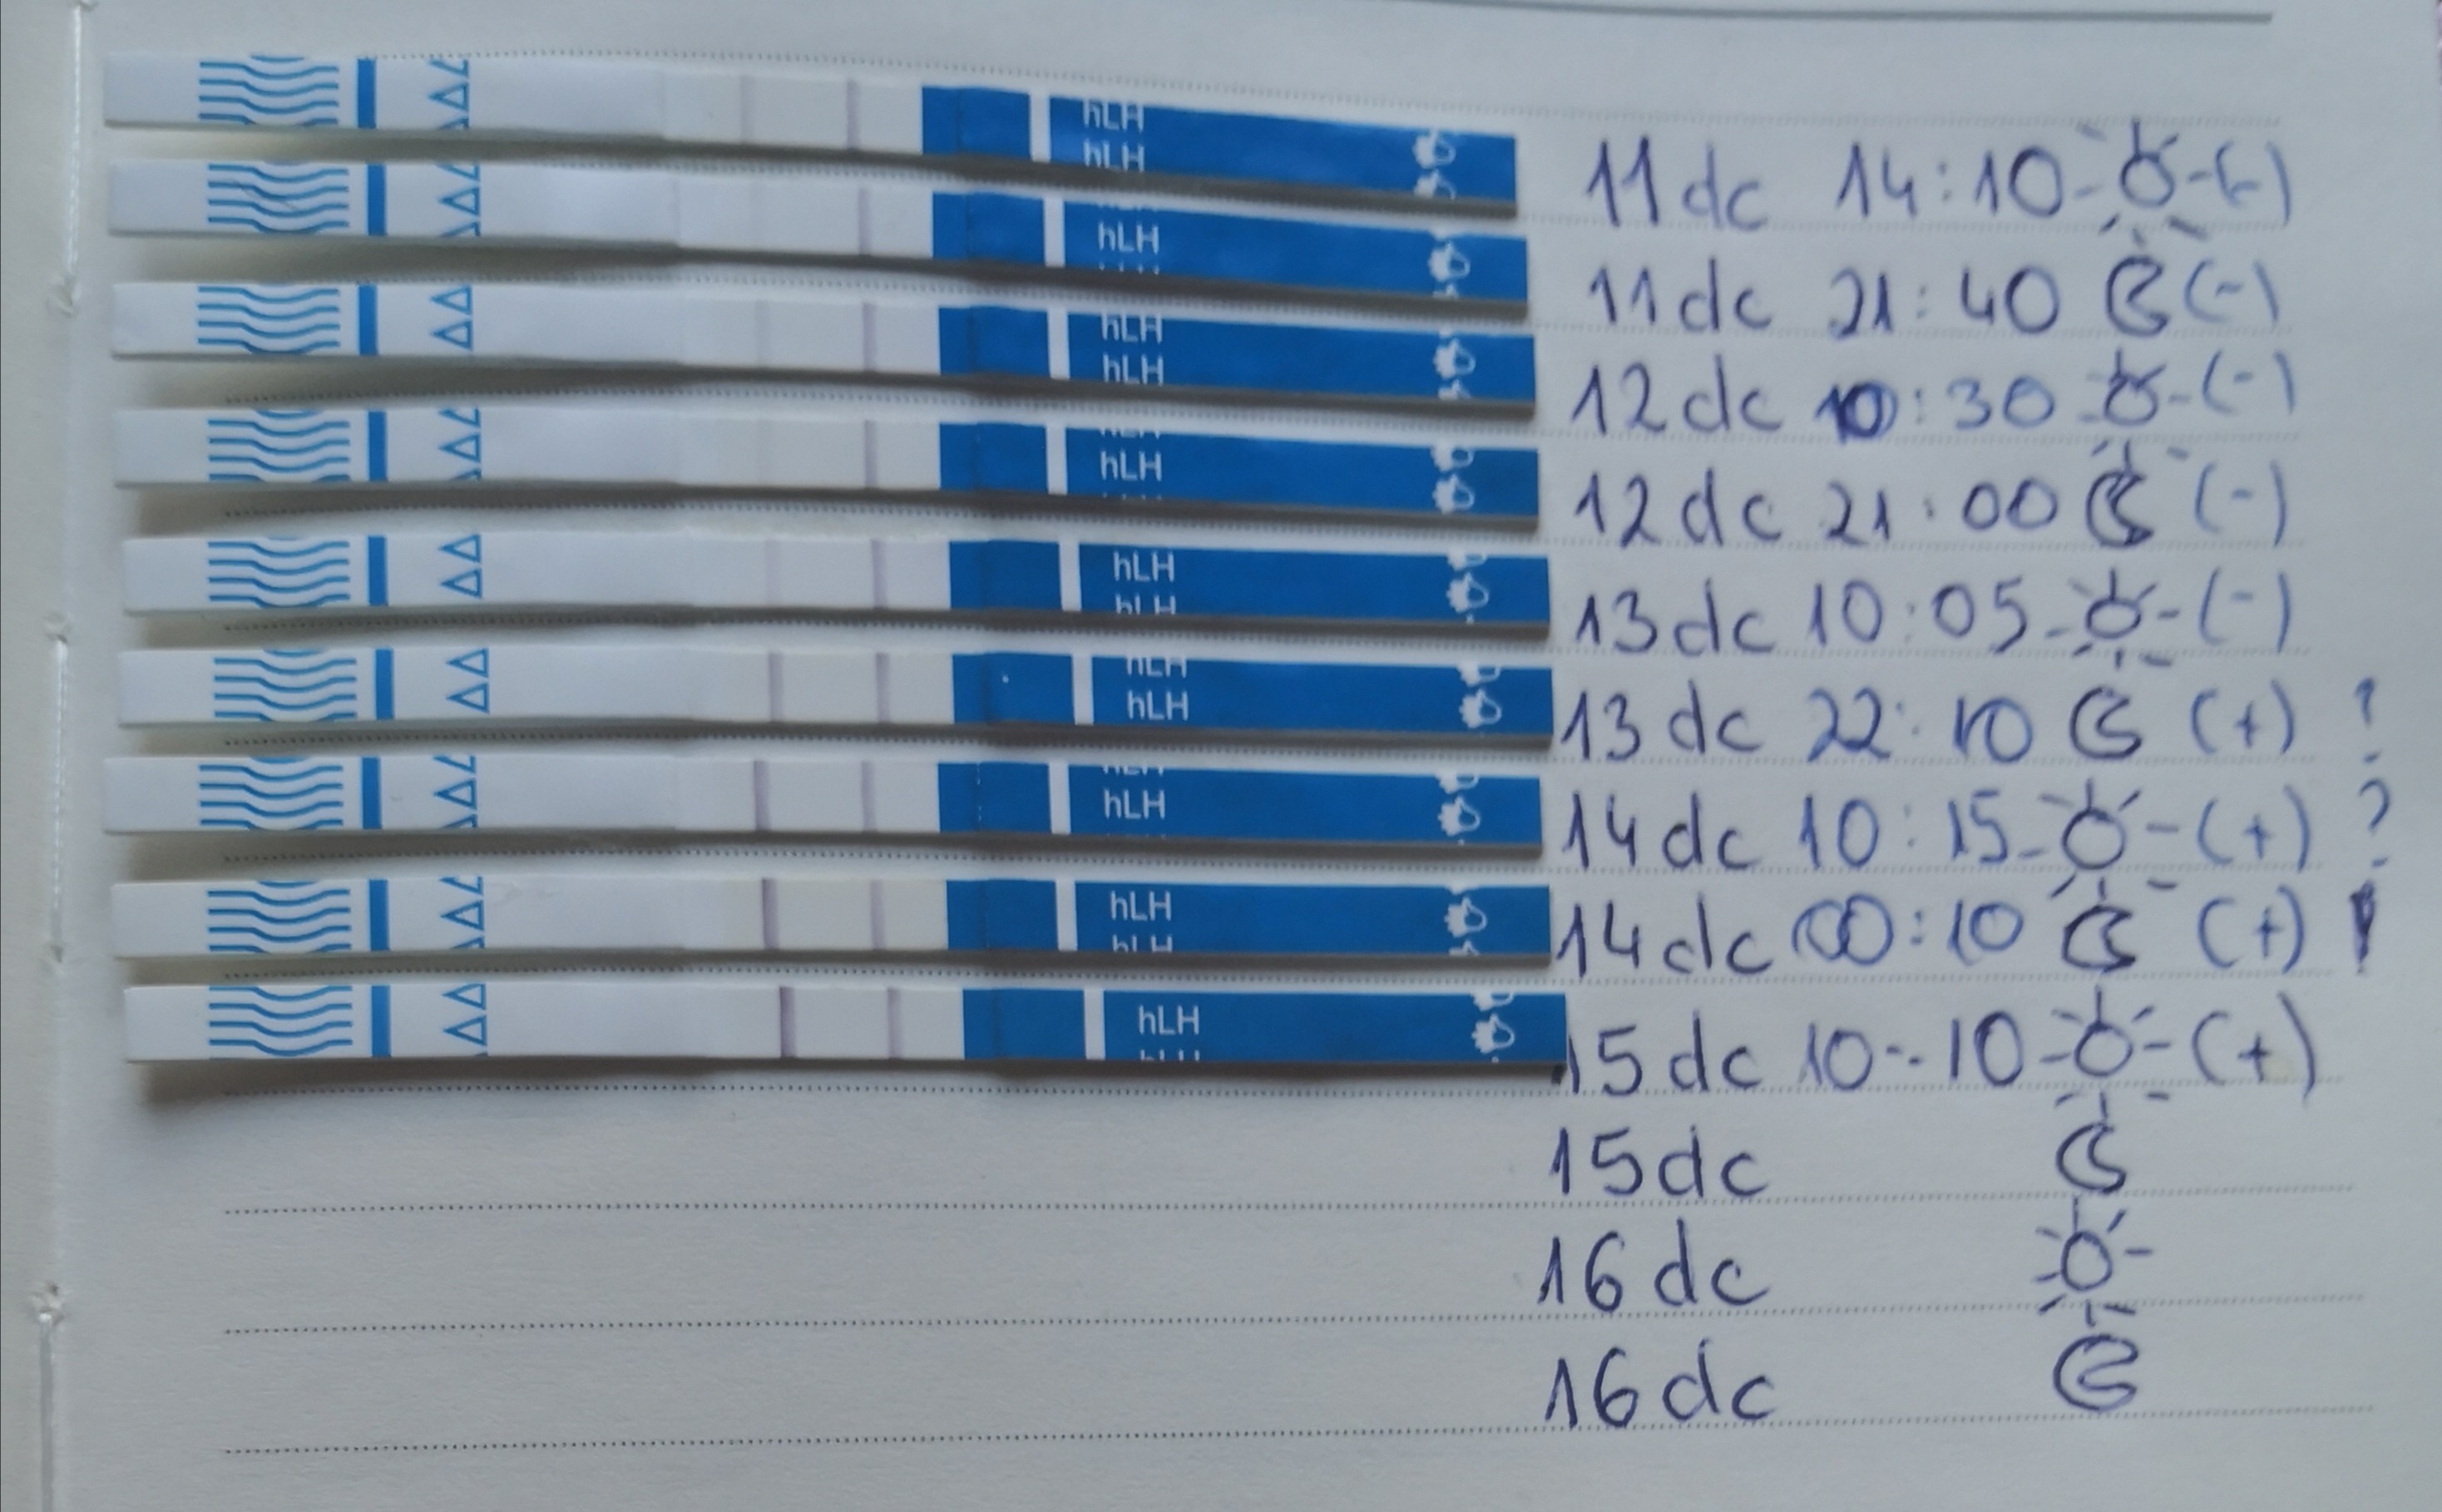 hLH
hLH
11dc 14:10 (-)
hLH
11dc 21:40 (-)
hLH
hLH
12dc 10:30 (-)
hLH
12dc 21:00 (-)
hLH
hLH
13dc 10:05 (-)
hLH
hLH
13dc 22:10 (+) ?
hLH
hLH
14dc 10:15 (+) ?
hLH
hLH
14dc 00:10 (+) !
hLH
hLH
15dc 10:10 (+)
15dc
16dc
16dc